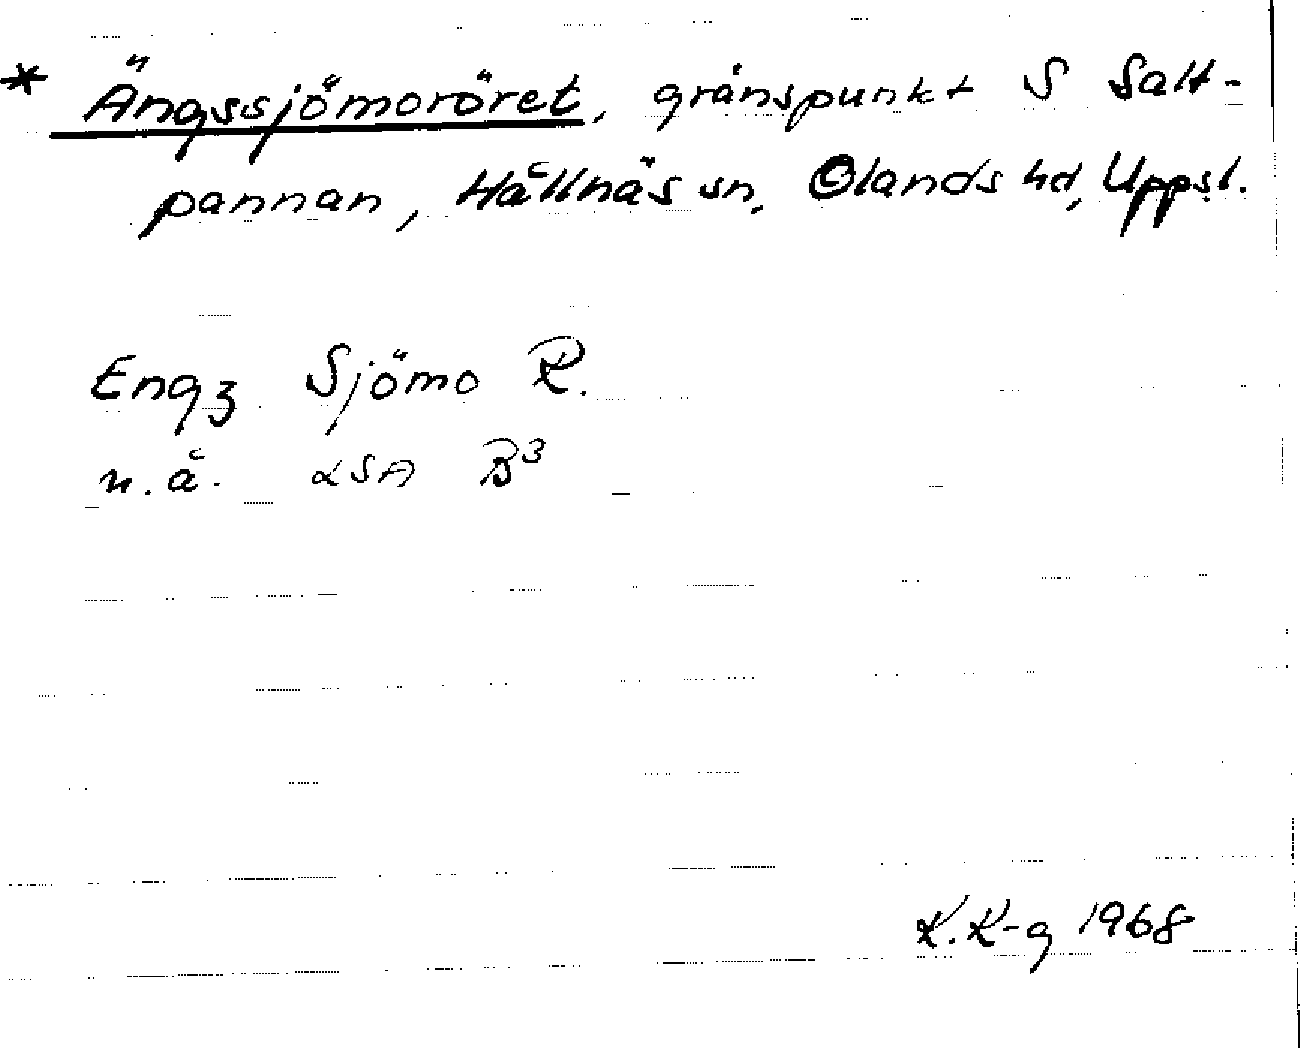 * Ängssjömoröret, gränspunkt S Salt-
pannan, Hållnäs sn, Olands hd, Uppsl.
Engz Sjömo R.
n.å. LSA B³
K.K-g 1968